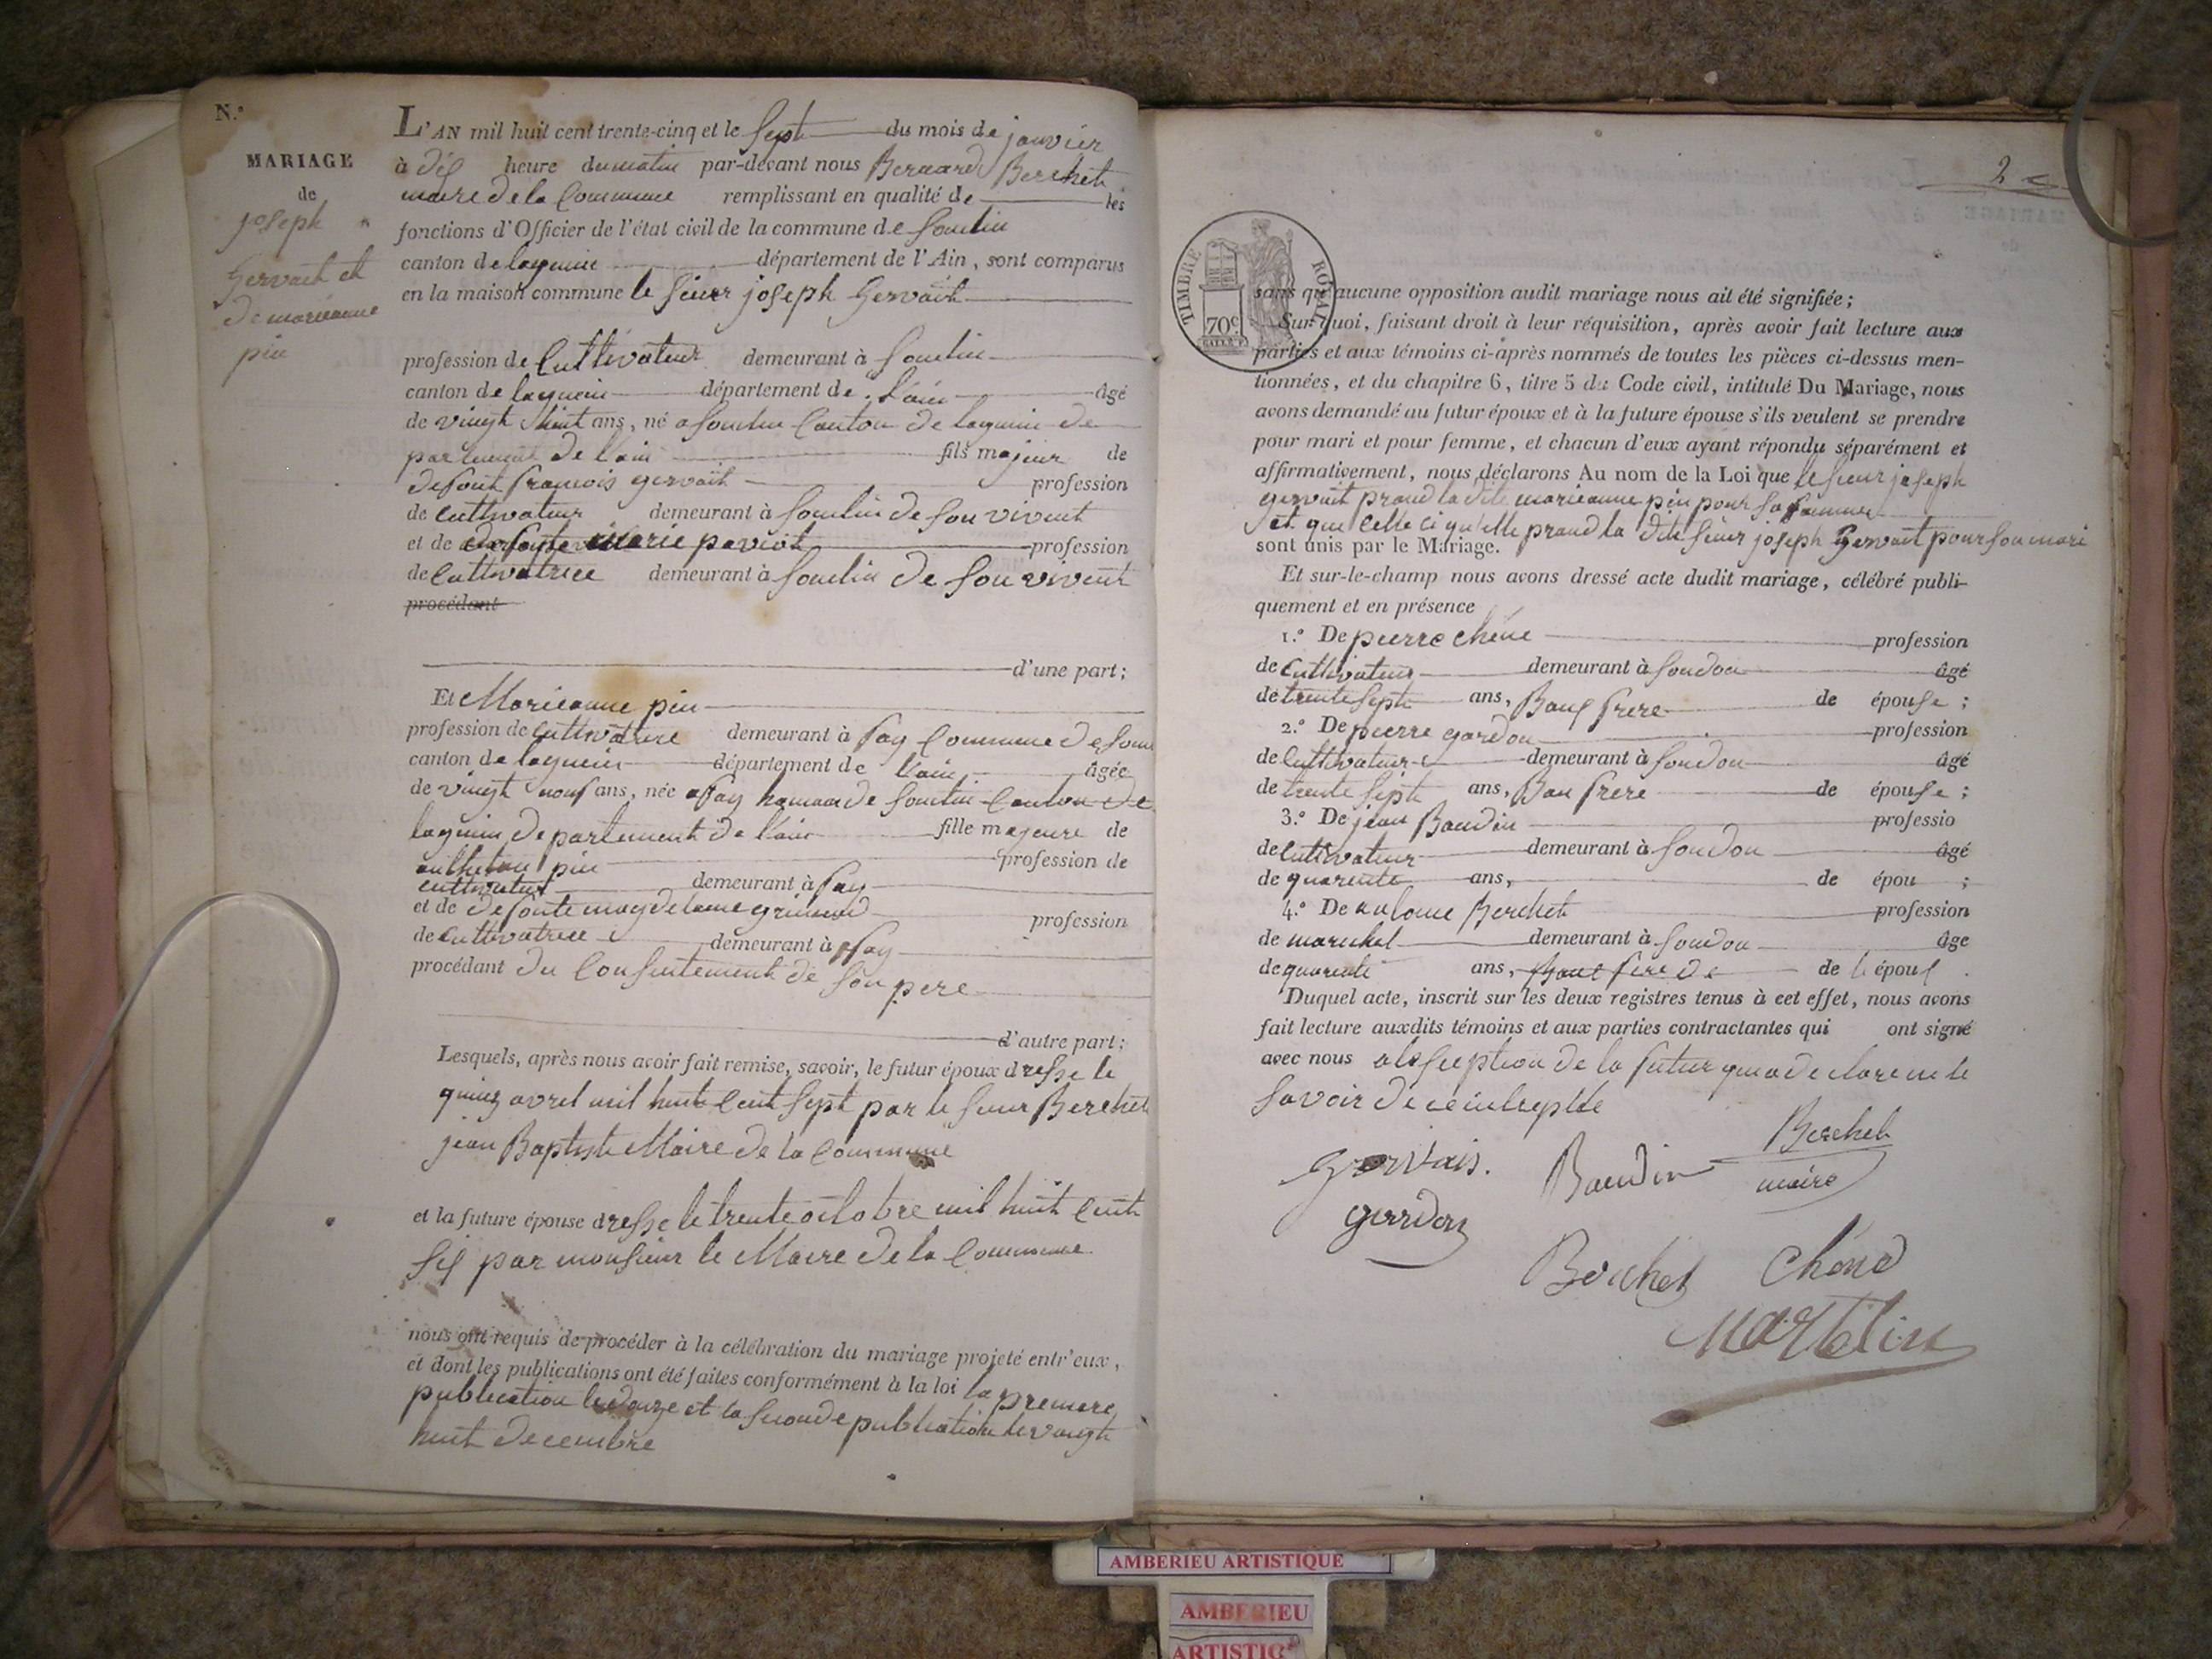 N.°
MARIAGE
de
joseph
Gervait et
de marieanne
pin
L'AN mil huit cent trente-cinq et le sept du mois de janvier
à dis heure du matin par-devant nous Bernard Berchet
maire de la Commune remplissant en qualité de les
fonctions d'Officier de l'état civil de la commune de
canton de département de l'Ain, sont comparus
en la maison commune le sieur joseph Gervait
profession de Cultivateur demeurant à
canton de département de l'ain âgé
de vingt huit ans, né a Canton de de
partement de l'ain fils majeur de
defont francois gervait profession
de cultivateur demeurant à de son vivent
et de defonte Marie profession
de Cultivatrice demeurant à de son vivent
procédant
d'une part;
Et Marieanne pin
profession de cultivatrice demeurant à fay Commune de
canton de département de l'ain âgée
de vingt nouf ans, née a fay de Canton de
departement de l'ain fille majeure de
pin profession de
cultivateur demeurant à fay
et de defonte profession
de Cultivatrice demeurant à fay
procédant du Consentement de son pere
d'autre part;
Lesquels, après nous avoir fait remise, savoir, le futur époux dresse le
quinz avrel mil huit Cent sept par le sieur Berchet
jean Baptiste Maire de la Commune
et la future épouse dresse le trente octobre mil huit Cent
sis par monsieur le Maire de la Commune
nous ont requis de procéder à la célébration du mariage projeté entr'eux,
et dont les publications ont été faites conformément à la loi la premere
publication le et la seconde publication le vingt
huit decembre
2
TIMBRE ROYAL
70c.
sans qu'aucune opposition audit mariage nous ait été signifiée;
Sur quoi, faisant droit à leur réquisition, après avoir fait lecture aux
parties et aux témoins ci-après nommés de toutes les pièces ci-dessus men-
tionnées, et du chapitre 6, titre 5 du Code civil, intitulé Du Mariage, nous
avons demandé au futur époux et à la future épouse s'ils veulent se prendre
pour mari et pour femme, et chacun d'eux ayant répondu séparément et
affirmativement, nous déclarons Au nom de la Loi que le sieur joseph
gervait prand la dite marieanne pin pour sa famme
et que Celle ci qu'elle prand la dite sieur joseph Gervait pour son mari
sont unis par le Mariage.
Et sur-le-champ nous avons dressé acte dudit mariage, célébré publi-
quement et en présence
1.° De pierre chêne profession
de Cultivateur demeurant à Soudon âgé
de trente sept ans, Baux frere de épouse;
2.° De pierre gardon profession
de Cultivateur demeurant à Soudon âgé
de trente sept ans, Bau frere de épouse;
3.° De jean Baudin professio
de Cultivateur demeurant à Soudon âgé
de quarente ans, de épou ;
4.° De Berchet profession
de marechal demeurant à Soudon âge
de quarente ans, de de l'épous
Duquel acte, inscrit sur les deux registres tenus à cet effet, nous avons
fait lecture auxdits témoins et aux parties contractantes qui ont signé
avec nous de la futur qui a declare ne le
savoir de ce
Gervais.
Baudin
Berchet
maire
gardon
Berchet
Chêne
Martelin
AMBERIEU ARTISTIQUE
AMBERIEU
ARTISTIQ